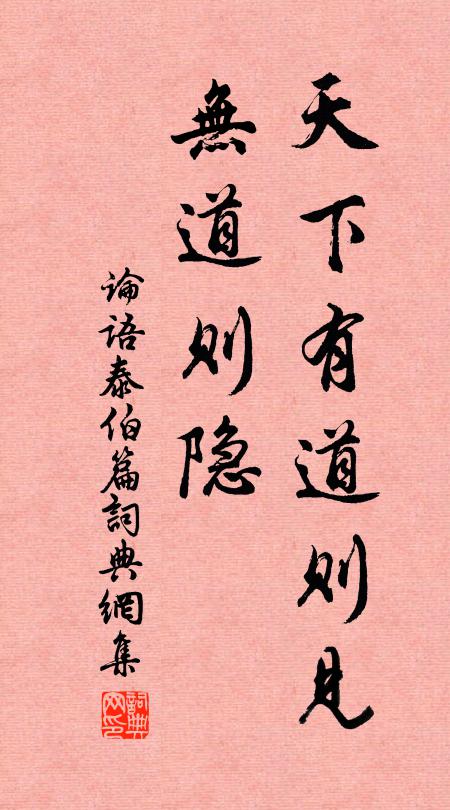 天下有道则見
無道则隐
论语泰伯篇詞典網集
詞典网印